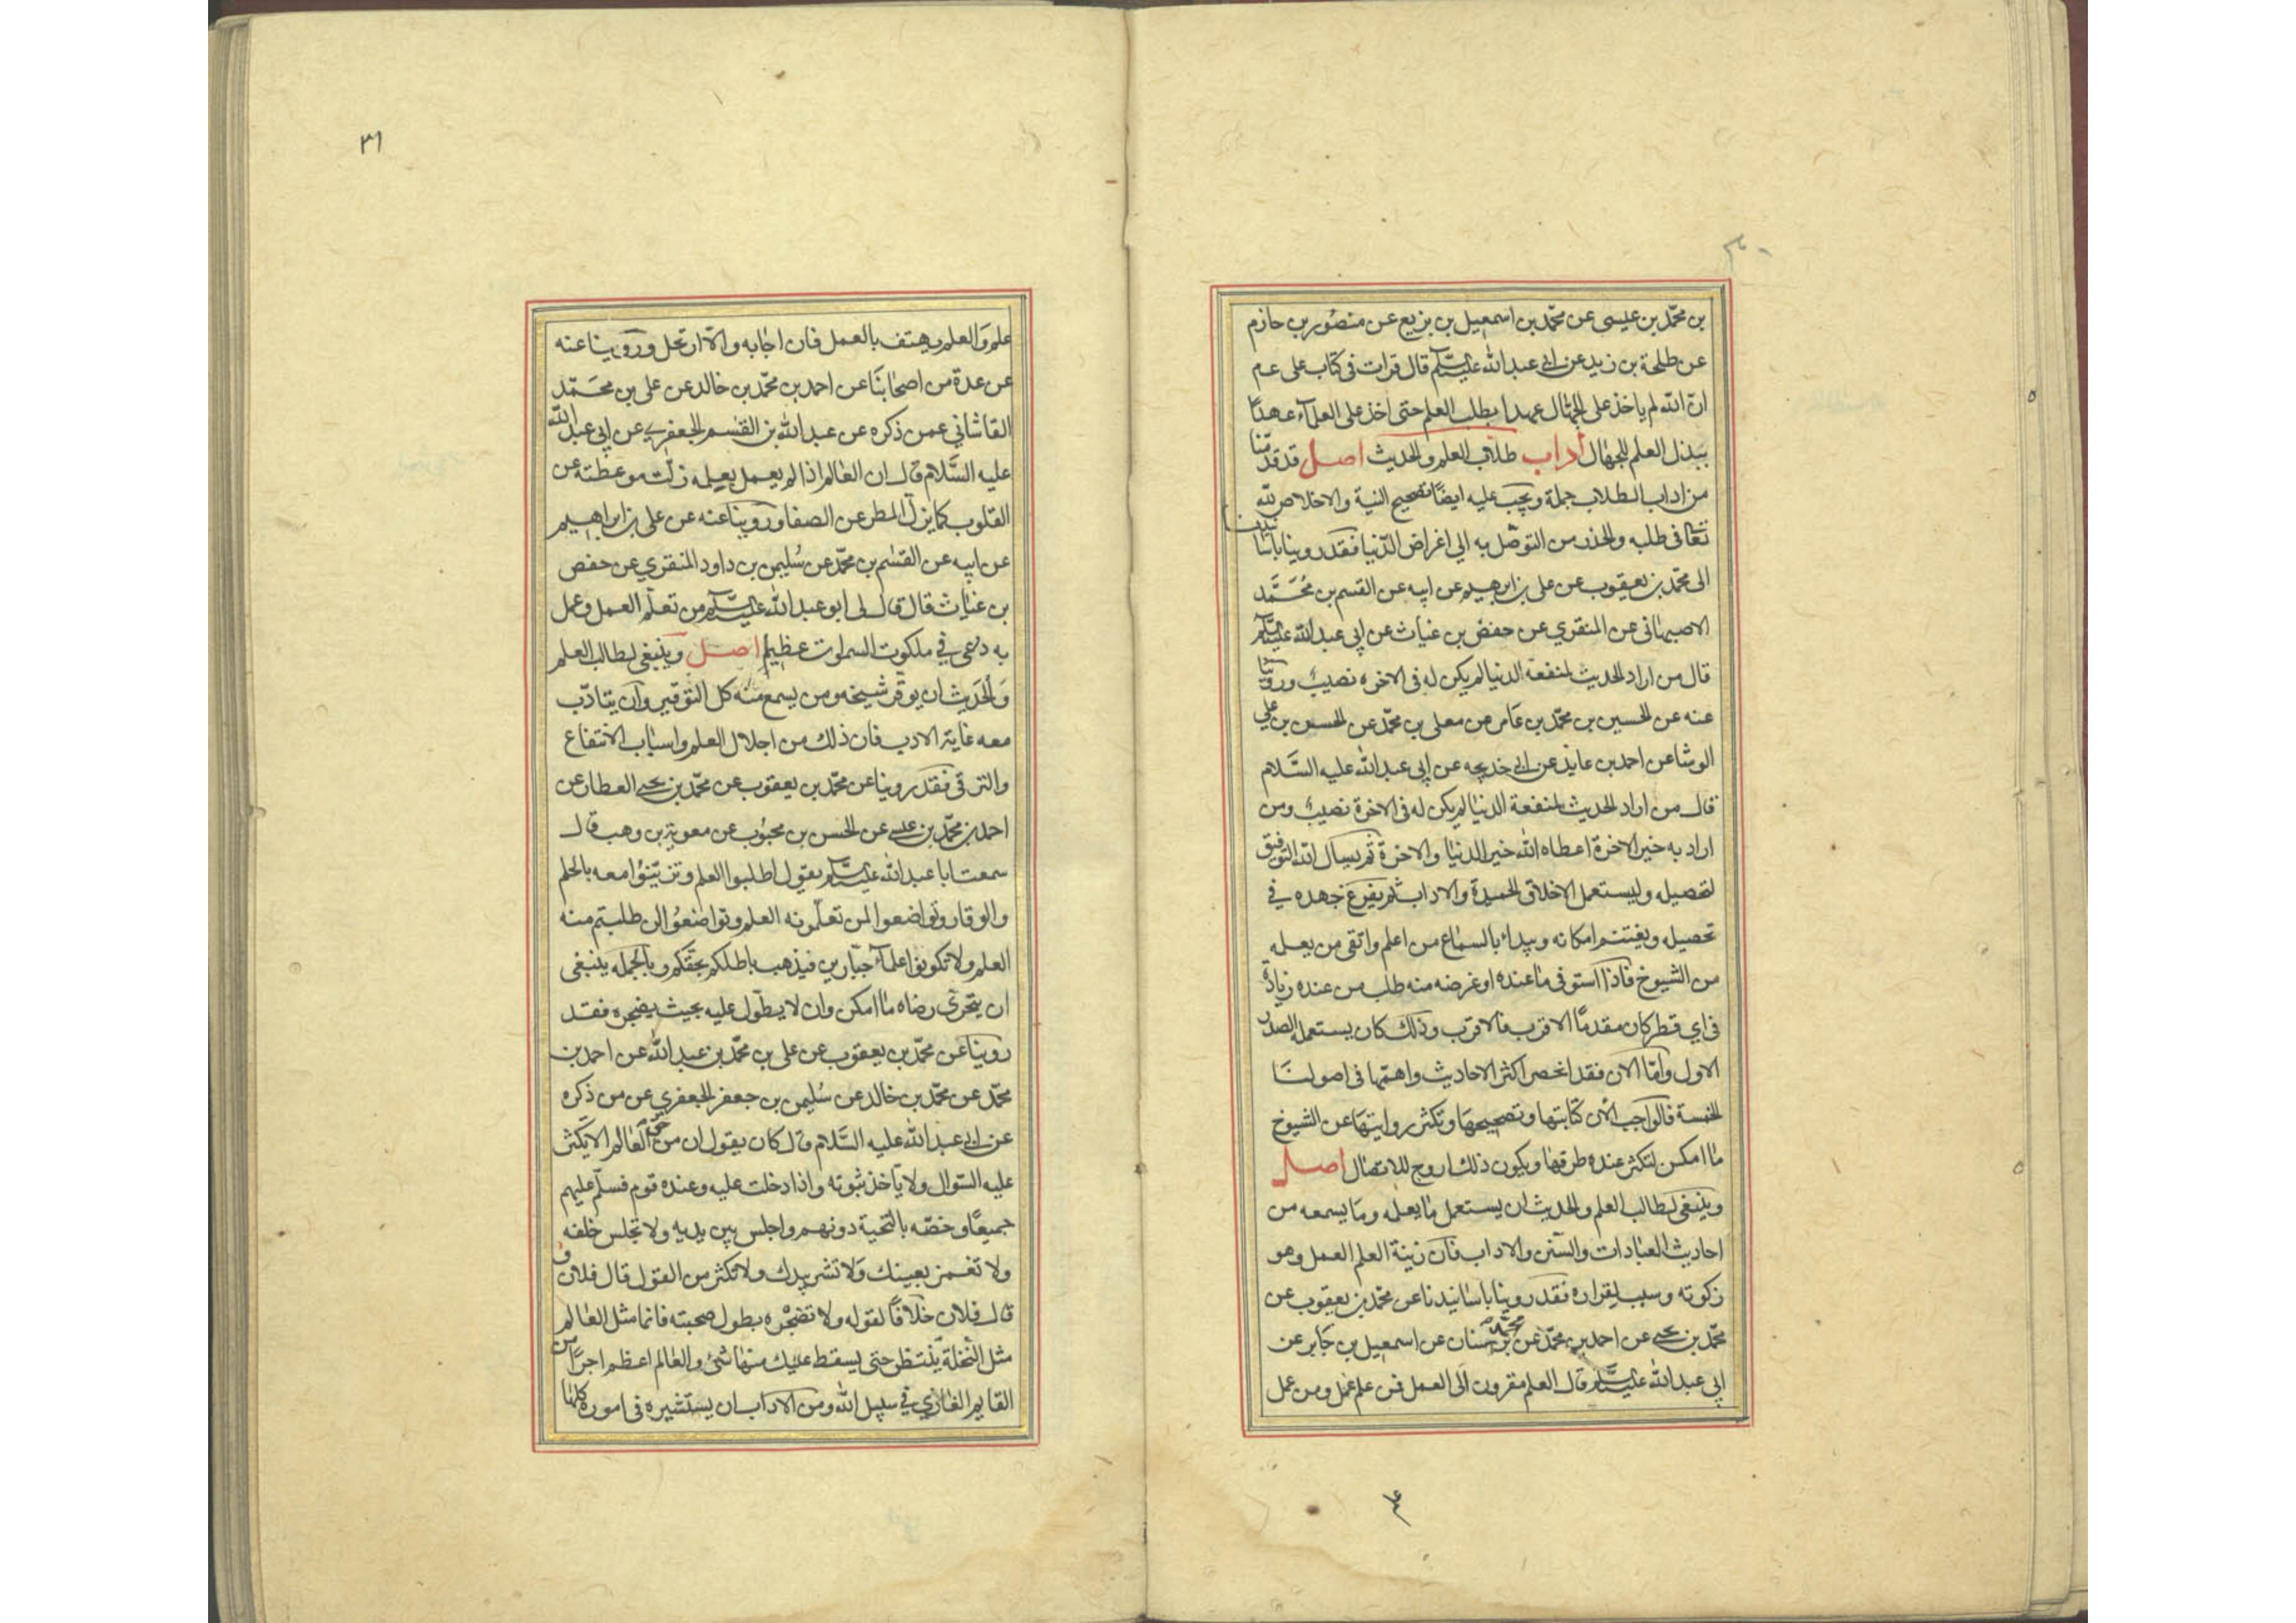 بن محمّد بن عيسى عن محمّد بن اسمعيل بن بزيع عن منصور بن حازم
عن طلحة بن زيد عن ابي عبد الله عليه السلام قال قرات في كتاب علي عم
ان الله لم ياخذ على الجهّال عهدا بطلب العلم حتى اخذ على العلماء عهدًا
ببذل العلم للجهال اداب طلاب العلم والحديث اصل قد قدّمنا
من اداب الطلاب جملة ويجب عليه ايضًا تصحيح النية والاخلاص لله
تعا في طلبه والحذر من التوصّل به الى اغراض الدّنيا فقد روينا باسانيدنا
الى محمّد بن يعقوب عن علي بن ابرهيم عن ابيه عن القسم بن محمّد
الاصبهاني عن المنقري عن حفص بن غياث عن ابي عبد الله عليه السلام
قال من اراد الحديث لمنفعة الدنيا لم يكن له في الاخرة نصيب وروينا
عنه عن الحسين بن محمّد بن عامر عن معلى بن محمّد عن الحسن بن علي
الوشا عن احمد بن عايذ عن ابي خديجه عن ابي عبد الله عليه السّلام
قال من اراد الحديث لمنفعة الدنيا لم يكن له في الاخرة نصيب ومن
اراد به خير الاخرة اعطاه الله خير الدنيا والاخرة ثم يسال الله التوفيق
لتحصيله وليستعمل الاخلاق الحميدة والاداب ثم يفرغ جهده في
تحصيله ويغتنم امكانه ويبداء بالسماع من اعلم واتقى من يعله
من الشيوخ فاذا استوفى ما عنده او غرضه منه طلب من عنده زيادة
في اي قطر كان مقدمًا الاقرب فالاقرب وذلك كان يستعمل الصدر
الاول وامّا الان فقد انحصر اكثر الاحاديث واهمّها في اصولنا
الخمسة فالواجب الان كتابتها وتصحيحها وتكثر روايتها عن الشيوخ
ما امكن لتكثر عنده طرقها ويكون ذلك اروج للاتصال اصل
وينبغي لطالب العلم والحديث ان يستعمل ما يعلمه وما يسمعه من
احاديث العبادات والسنن والاداب فان زينة العلم العمل وهو
زكوته وسبب لقراره فقد روينا باسانيدنا عن محمّد بن يعقوب عن
محمّد بن يحيى عن احمد بن محمّد عن محمّد بن سنان عن اسمعيل بن جابر عن
ابي عبد الله عليه السلام قال العلم مقرون الى العمل فمن علم عمل ومن عمل
٣١
علم والعلم يهتف بالعمل فان اجابه والا ارتحل وروينا عنه
عن عدة من اصحابنا عن احمد بن محمّد بن خالد عن علي بن محمّد
القاشاني عمن ذكره عن عبد الله بن القسم الجعفري عن ابي عبد الله
عليه السّلام قال ان العالم اذا لم يعمل بعلمه زلّت موعظته عن
القلوب كما يزل المطر عن الصفا وروينا عنه عن علي بن ابراهيم
عن ابيه عن القسم بن محمّد عن سليمن بن داود المنقري عن حفص
بن غياث قال قال لي ابو عبد الله عليه السلام من تعلّم العمل وعمل
به دعي في ملكوت السموات عظيم اصل وينبغي لطالب العلم
والحديث ان يوقر شيخه ومن يسمع منه كل التوقير وان يتادّب
معه غاية الادب فان ذلك من اجلال العلم واسباب الانتفاع
والترقي فقد روينا عن محمّد بن يعقوب عن محمّد بن يحيى العطار عن
احمد بن محمّد بن عيسى عن الحسن بن محبوب عن معوية بن وهب قال
سمعت ابا عبد الله عليه السلام يقول اطلبوا العلم وتزيّنوا معه بالحلم
والوقار وتواضعوا لمن تعلّمونه العلم وتواضعوا لمن طلبتم منه
العلم ولا تكونوا علماء جبّارين فيذهب باطلكم بحقكم وبالجمله ينبغي
ان يتحرى رضاه ما امكن وان لا يطوّل عليه بحيث يضجره فقد
روينا عن محمّد بن يعقوب عن علي بن محمّد بن عبد الله عن احمد بن
محمّد عن محمّد بن خالد عن سليمن بن جعفر الجعفري عن من ذكره
عن ابي عبد الله عليه السّلام قال كان يقول ان من حق العالم الا يكثر
عليه السّوال ولا ياخذ بثوبه واذا دخلت عليه وعنده قوم فسلّم عليهم
جميعًا وخصّه بالتحية دونهم واجلس بين يديه ولا تجلس خلفه
ولا تغمز بعينك ولا تشر بيدك ولا تكثر من القول قال فلان و
قال فلان خلافًا لقوله ولا تضجره بطول صحبته فانما مثل العالم
مثل النّخلة ينتظر حتى يسقط عليك منها شئ والعالم اعظم اجرًا من
القايم الغازي في سبيل الله ومن الاداب ان يستشيره في اموره كلها